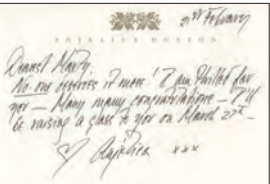 21st February
ANJELICA HUSTON
Dearest Marty,
No one deserves it more! I am thrilled for
you — Many many congratulations — I'll
be raising a glass to you on March 27th –
Anjelica xxx